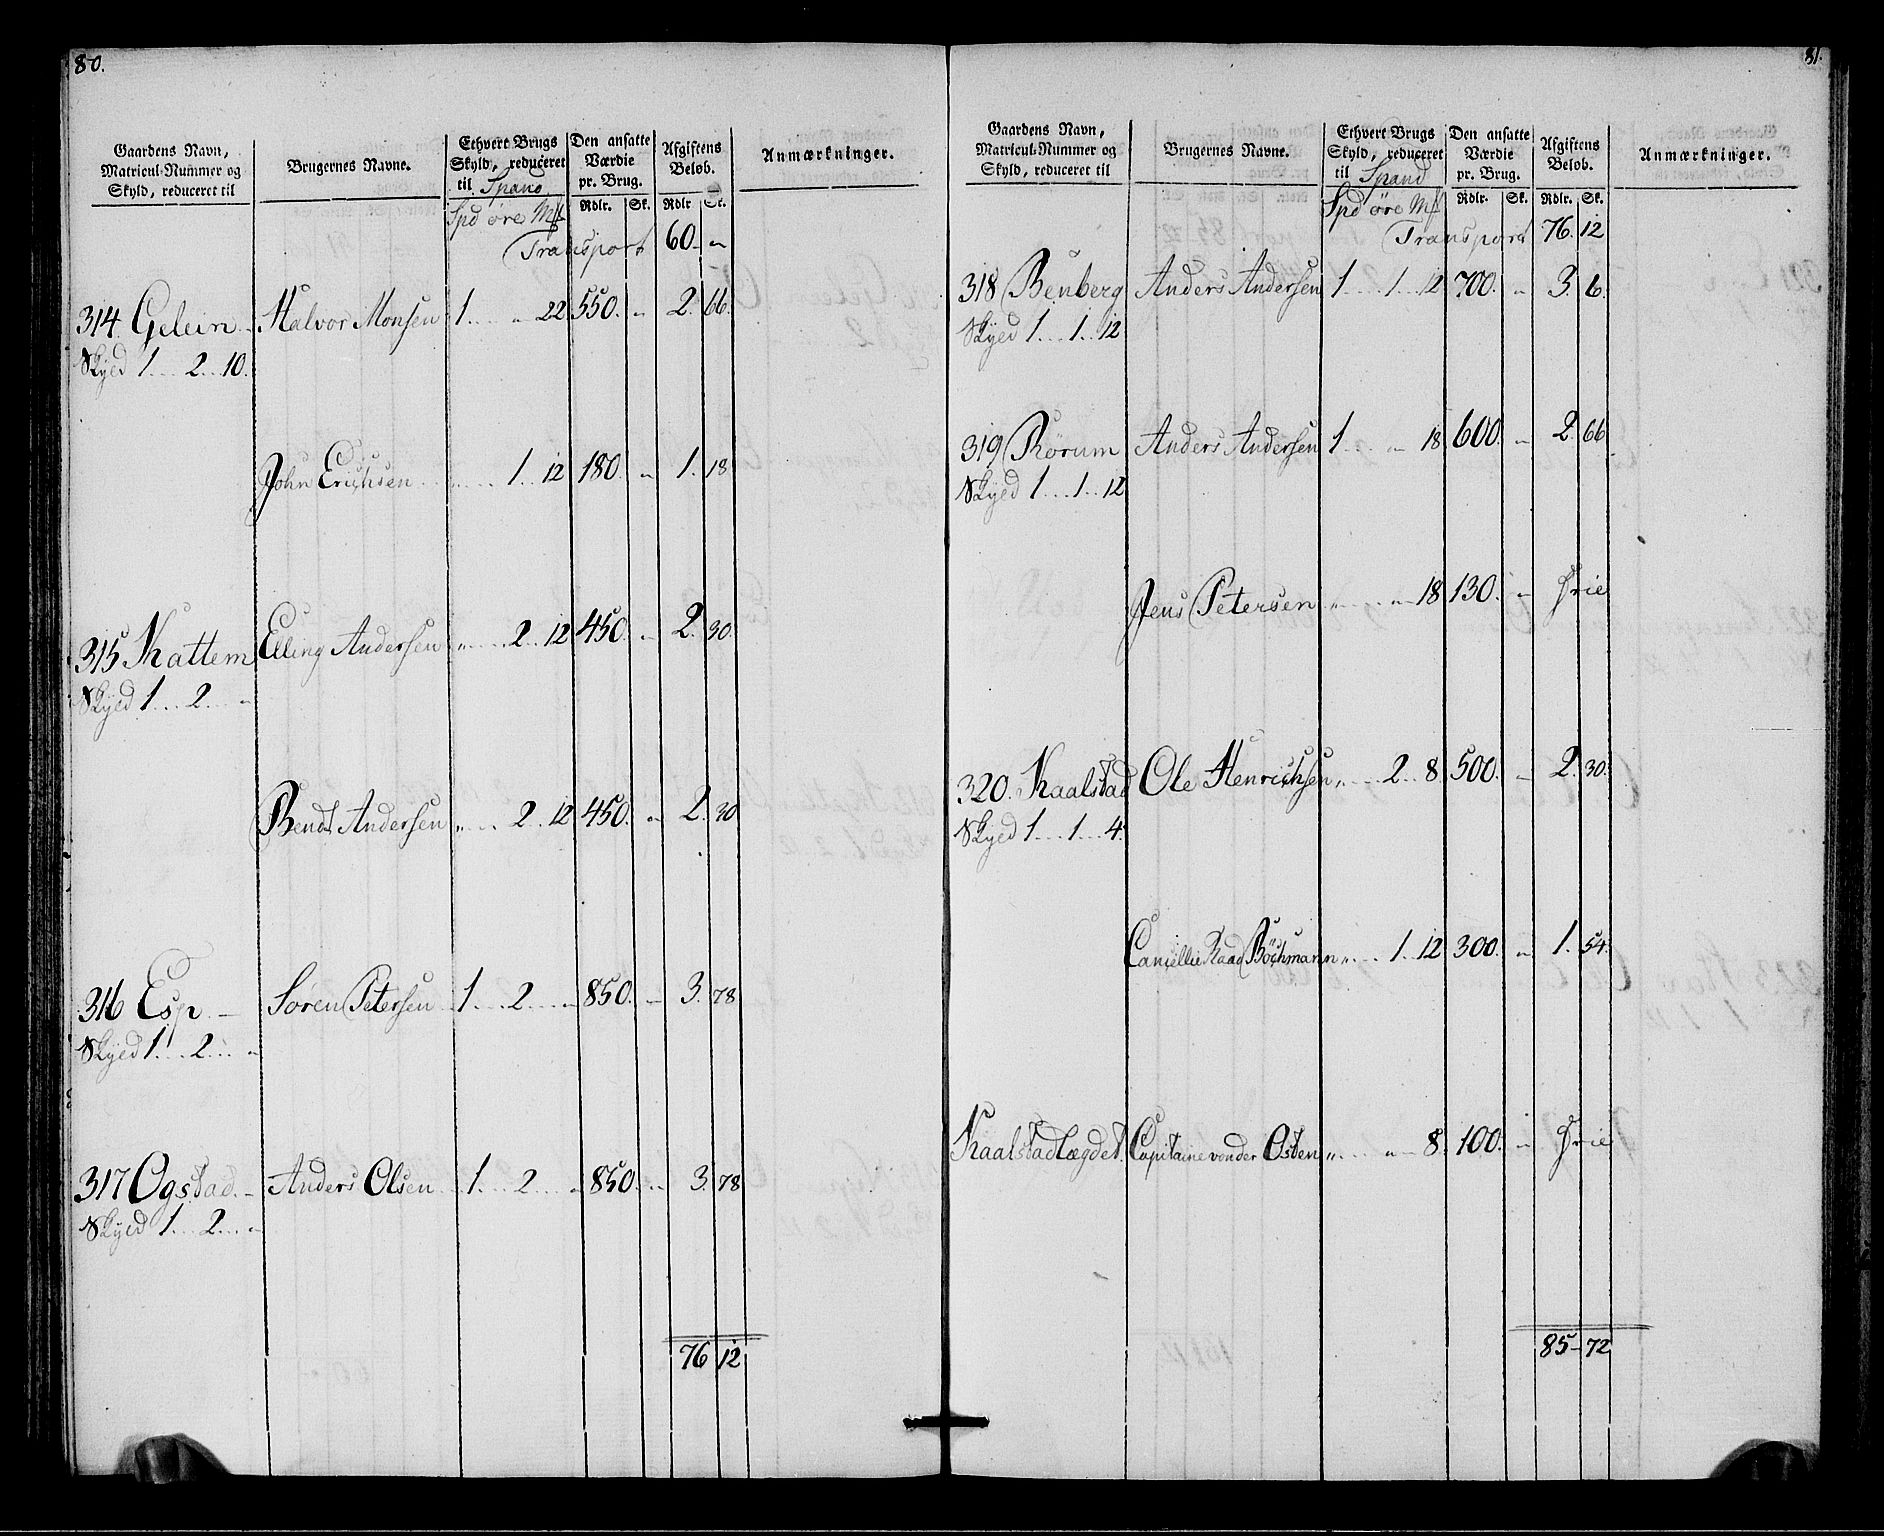 80.
Gaardens Navn, Matricul-Nummer og Skyld, reduceret til
Brugernes Navne.
Ethvert Brugs Skyld, reduceret til Spand
Den ansatte Værdie pr. Brug.
Afgiftens Beløb.
Anmærkninger.
Spd øre Mk Rdlr. Sk. Rdlr Sk.
Transport 60. "
314 Gelein Halvor Monsen 1 .... " 22 550. " 2. 66.
Skyld 1 .... 2 .. 10.
John Erichsen ........ 1 .. 12 180. " 1. 18
315 Kattem Elling Andersen " .... 2 .. 12 450. " 2. 30.
Skyld 1 .... 2 .... "
Bendt Andersen " .... 2 .. 12 450. " 2. 30
316 Esp. Søren Petersen 1 .... 2 .... " 850. " 3. 78
Skyld 1 .... 2 .... "
317 Ogstad. Anders Olsen 1 .... 2 .... " 850. " 3. 78
Skyld 1 .... 2 .... "
76 12
81.
Gaardens Navn, Matricul-Nummer og Skyld, reduceret til
Brugernes Navne.
Ethvert Brugs Skyld, reduceret til Spand
Den ansatte Værdie pr. Brug.
Afgiftens Beløb.
Anmærkninger.
Spd øre Mk Rdlr. Sk. Rdlr. Sk.
Transport 76. 12
318 Benberg Anders Andersen 1 .... 1 .. 12 700. " 3. 6.
Skyld 1 .... 1 .. 12
319 Rørum Anders Andersen 1 .... " 18 600. " 2. 66
Skyld 1 .... 1 .. 12
Jens Petersen " .... " 18 130. " Frie
320. Kaalstad Ole Henrichsen " .... 2 .. 8 500. " 2. 30.
Skyld 1 .... 1 .... 4.
Cancellie Raad Böchmann " .... 1 .. 12 300. " 1. 54.
KaalstadLægdet. Capitaine von der Osten " .... " 8. 100. " Frie
85 72